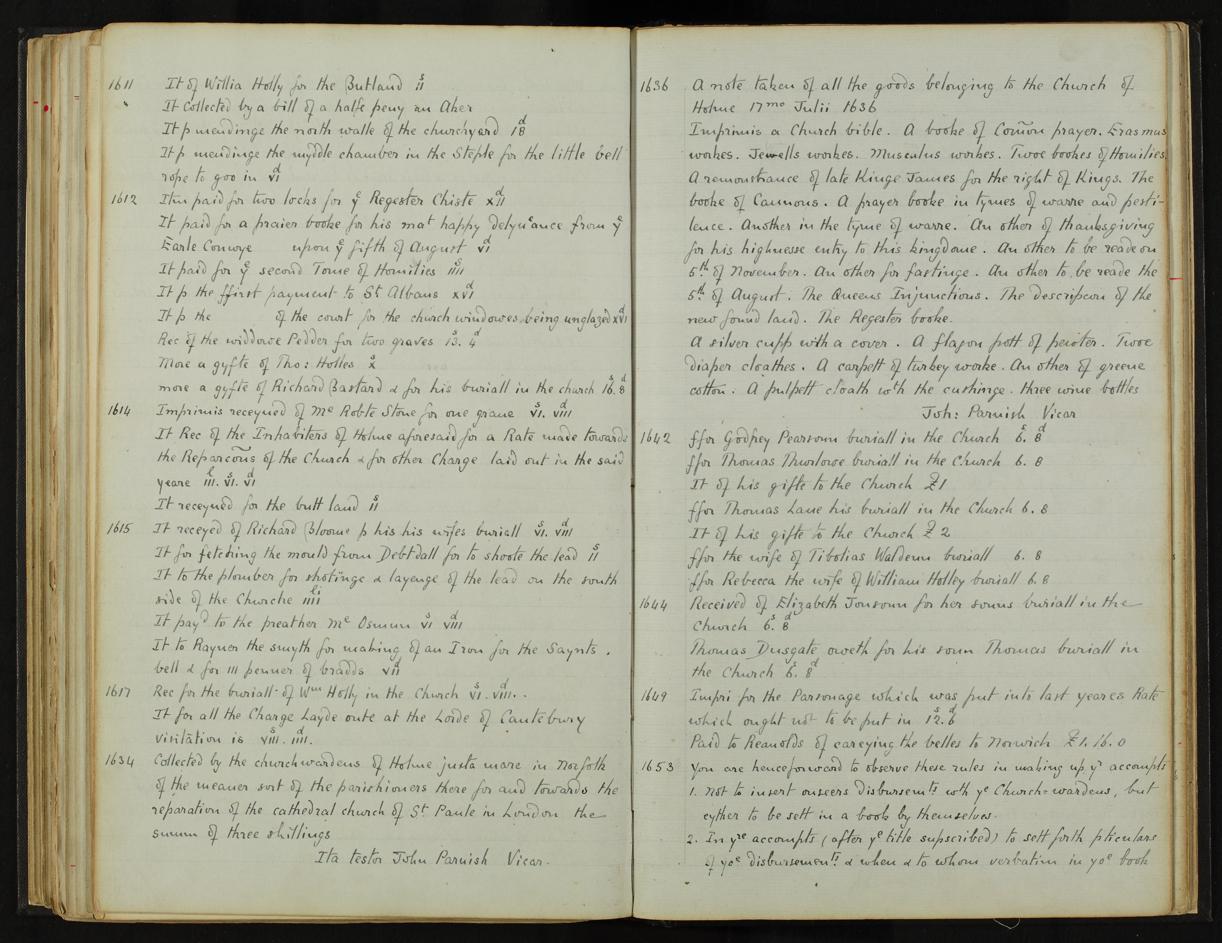 1611 It of Willia Holly for the Butland ii s
It Collected by a bill of a halfe peny an Aker
It p mendinge the north walle of the churchyerd 18 d
It p mendinge the myddle chamber in the Steple for the little bell
rope to goo in vi d
1612 Itm paid for two locks for ye Regester Chiste xii d
It paid for a praier booke for his mat happy delyuance from ye
Earle Conwye upon ye fifth of August vi d
It paid for ye second Tome of Homilies iiii s
It p the ffirst payment to St Albans xvi d
It p the of the court for the church windowes being unglazed xvi d
Rec of the widdowe Pedder for two graves 13 s. 4 d
More a gyfte of Tho: Holles x s
more a gyfte of Richard Bastard & for his buriall in the church 16 s. 8 d
1614 Imprimis receyued of Mr Robte Stone for one graue vi s. viii d
It Rec of the Inhabiters of Holme aforesaid for a Rate made towards
the Reparcōns of the Church & for other Charge laid out in the said
yeare iii l. vi s. vi d
It receyued for the butt land ii s
1615 It receyed of Richard Bloome p his his wifes buriall vi s. viii d
It for fetching the mould from Debtdall for to shoote the lead ii s
It to the plomber for shotinge & layenge of the lead on the south
side of the Churche iiii li
It payd to the preather Mr Osmun vi s viii d
It to Rayner the smyth for making of an Iron for the Saynts.
bell & for iii penner of bradds vii d
1617 Rec for the buriall of Wm Holly in the Church vi s. viii d..
It for all the Charge Layde oute at the Lorde of Cantebury
visitation is viii s. iiii d.
1634 Collected by the churchwardens of Holme justa mare in Norfolk
of the meaner sort of the parishioners there for and towards the
reparation of the cathedral church of St Paule in London the
summ of three shillings
Ita testor John Parnish Vicar.
1636 A note taken of all the goods belonging to the Church of
Holme 17mo Julii 1636
Imprimis a Church bible. A booke of Com̄on prayer. Erasmus
workes. Jewells workes. Musculus workes. Twoe bookes of Homilies
A remonstrance of late Kinge James for the right of Kings. The
booke of Cannons. A prayer booke in tymes of warre and pesti-
lence. Another in the tyme of warre. An other of thanksgiving
for his highnesse entry to this kingdome. An other to be reade on
5th of November. An other for fastinge. An other to be reade the
5th of August. The Queens Injunctions. The descripcon of the
new found land. The Regester booke.
A silver cupp with a cover. A flagon pott of pewter. Twoe
diaper cloathes. A carpett of turkey worke. An other of greene
cotton. A pulpett cloath wth the cushinge. three wine bottles
Joh: Parnish Vicar
1642 ffor Godfrey Pearsonn buriall in the Church 6 s. 8 d
ffor Thomas Thurlowe buriall in the Church 6. 8
It of his gifte to the Church £1
ffor Thomas Lane his buriall in the Church 6. 8
It of his gifte to the Church £2
ffor the wife of Tibolias Waldenn buriall 6. 8
ffor Rebecca the wife of William Holley buriall 6.8
1644 Received of Elizabeth Jonsonn for her sonns buriall in the
Church 6 s. 8 d
Thomas Dusgate oweth for his sonn Thomas buriall in
the Church 6 s. 8 d
1649 Impri for the Parsonage which was put into last yeares Rate
which ought not to be put in 12 s. 6 d
Paid to Reanolds of careying the belles to Norwich £1. 16. 0
1653 You are henceforward to observe these rules in making up yr accompts
1. not to insert ouseers Disbursemts wth ye Church=wardens, but
eyther to be sett in a book by themselves.
2. In yre accompts (after ye title supscribed) to sett forth pticulars
of yoe disbursements & when & to whom verbatim in yoe book